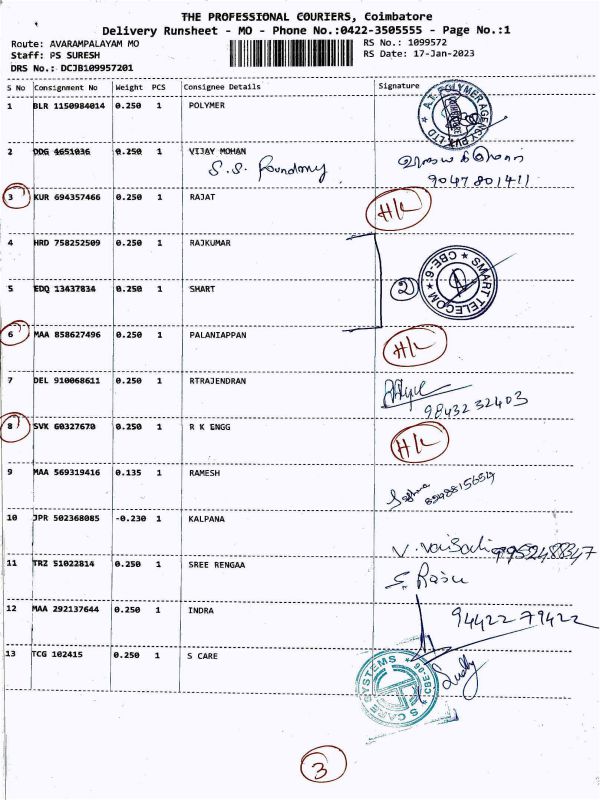 THE PROFESSIONAL COURIERS, Coimbatore
Delivery Runsheet - MO - Phone No.:0422-3505555 - Page No.:1
Route: AVARAMPALAYAM MO
RS No.: 1099572
Staff: PS SURESH
RS Date: 17-Jan-2023
DRS No.: DCJB109957201
S No Consignment No Weight PCS Consignee Details Signature
1 BLR 1150984014 0.250 1 POLYMER
A.T. POLYMER AGENCY PVT LTD
2 DDG 4651036 0.250 1 VIJAY MOHAN
S.S. foundary
9047801411
3 KUR 694357466 0.250 1 RAJAT H/L
4 HRD 758252509 0.250 1 RAJKUMAR
5 EDQ 13437834 0.250 1 SMART 2 SMART TELECOM CBE-6
6 MAA 858627496 0.250 1 PALANIAPPAN H/L
7 DEL 910068611 0.250 1 RTRAJENDRAN
9843232403
8 SVK 60327670 0.250 1 R K ENGG H/L
9 MAA 569319416 0.135 1 RAMESH
10 JPR 502368085 -0.230 1 KALPANA
V. Vaisali 9952488347
11 TRZ 51022814 0.250 1 SREE RENGAA
S. Rasu
12 MAA 292137644 0.250 1 INDRA
94422 79422
13 TCG 102415 0.250 1 S CARE
S CARE SYSTEMS CBE-06
3